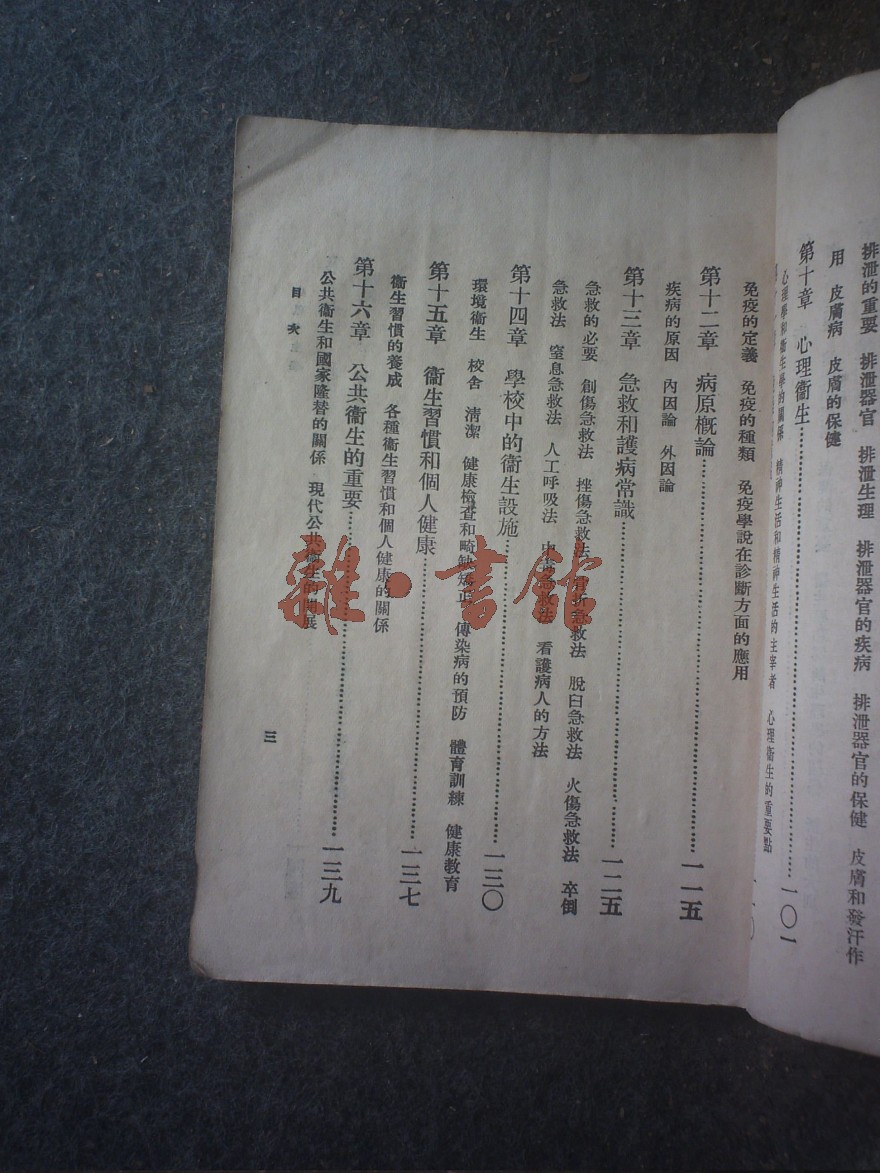 排泄的重要　排泄器官　排泄生理　排泄器官的疾病　排泄器官的保健　皮膚和發汗作
用　皮膚病　皮膚的保健
第十章　心理衞生……一〇一
心理學和衞生學的關係　精神生活和精神生活的主宰者　心理衞生的重要點
免疫的定義　免疫的種類　免疫學說在診斷方面的應用
第十二章　病原概論……一一五
疾病的原因　內因論　外因論
第十三章　急救和護病常識……一二五
急救的必要　創傷急救法　挫傷急救法　骨折急救法　脫臼急救法　火傷急救法　卒倒
急救法　窒息急救法　人工呼吸法　中毒急救法　看護病人的方法
第十四章　學校中的衞生設施……一三〇
環境衞生　校舍　清潔　健康檢查和畸缺矯正　傳染病的預防　體育訓練　健康教育
第十五章　衞生習慣和個人健康……一三七
衞生習慣的養成　各種衞生習慣和個人健康的關係
第十六章　公共衞生的重要……一三九
公共衞生和國家隆替的關係　現代公共衞生的開展
目次
三
雜·書館